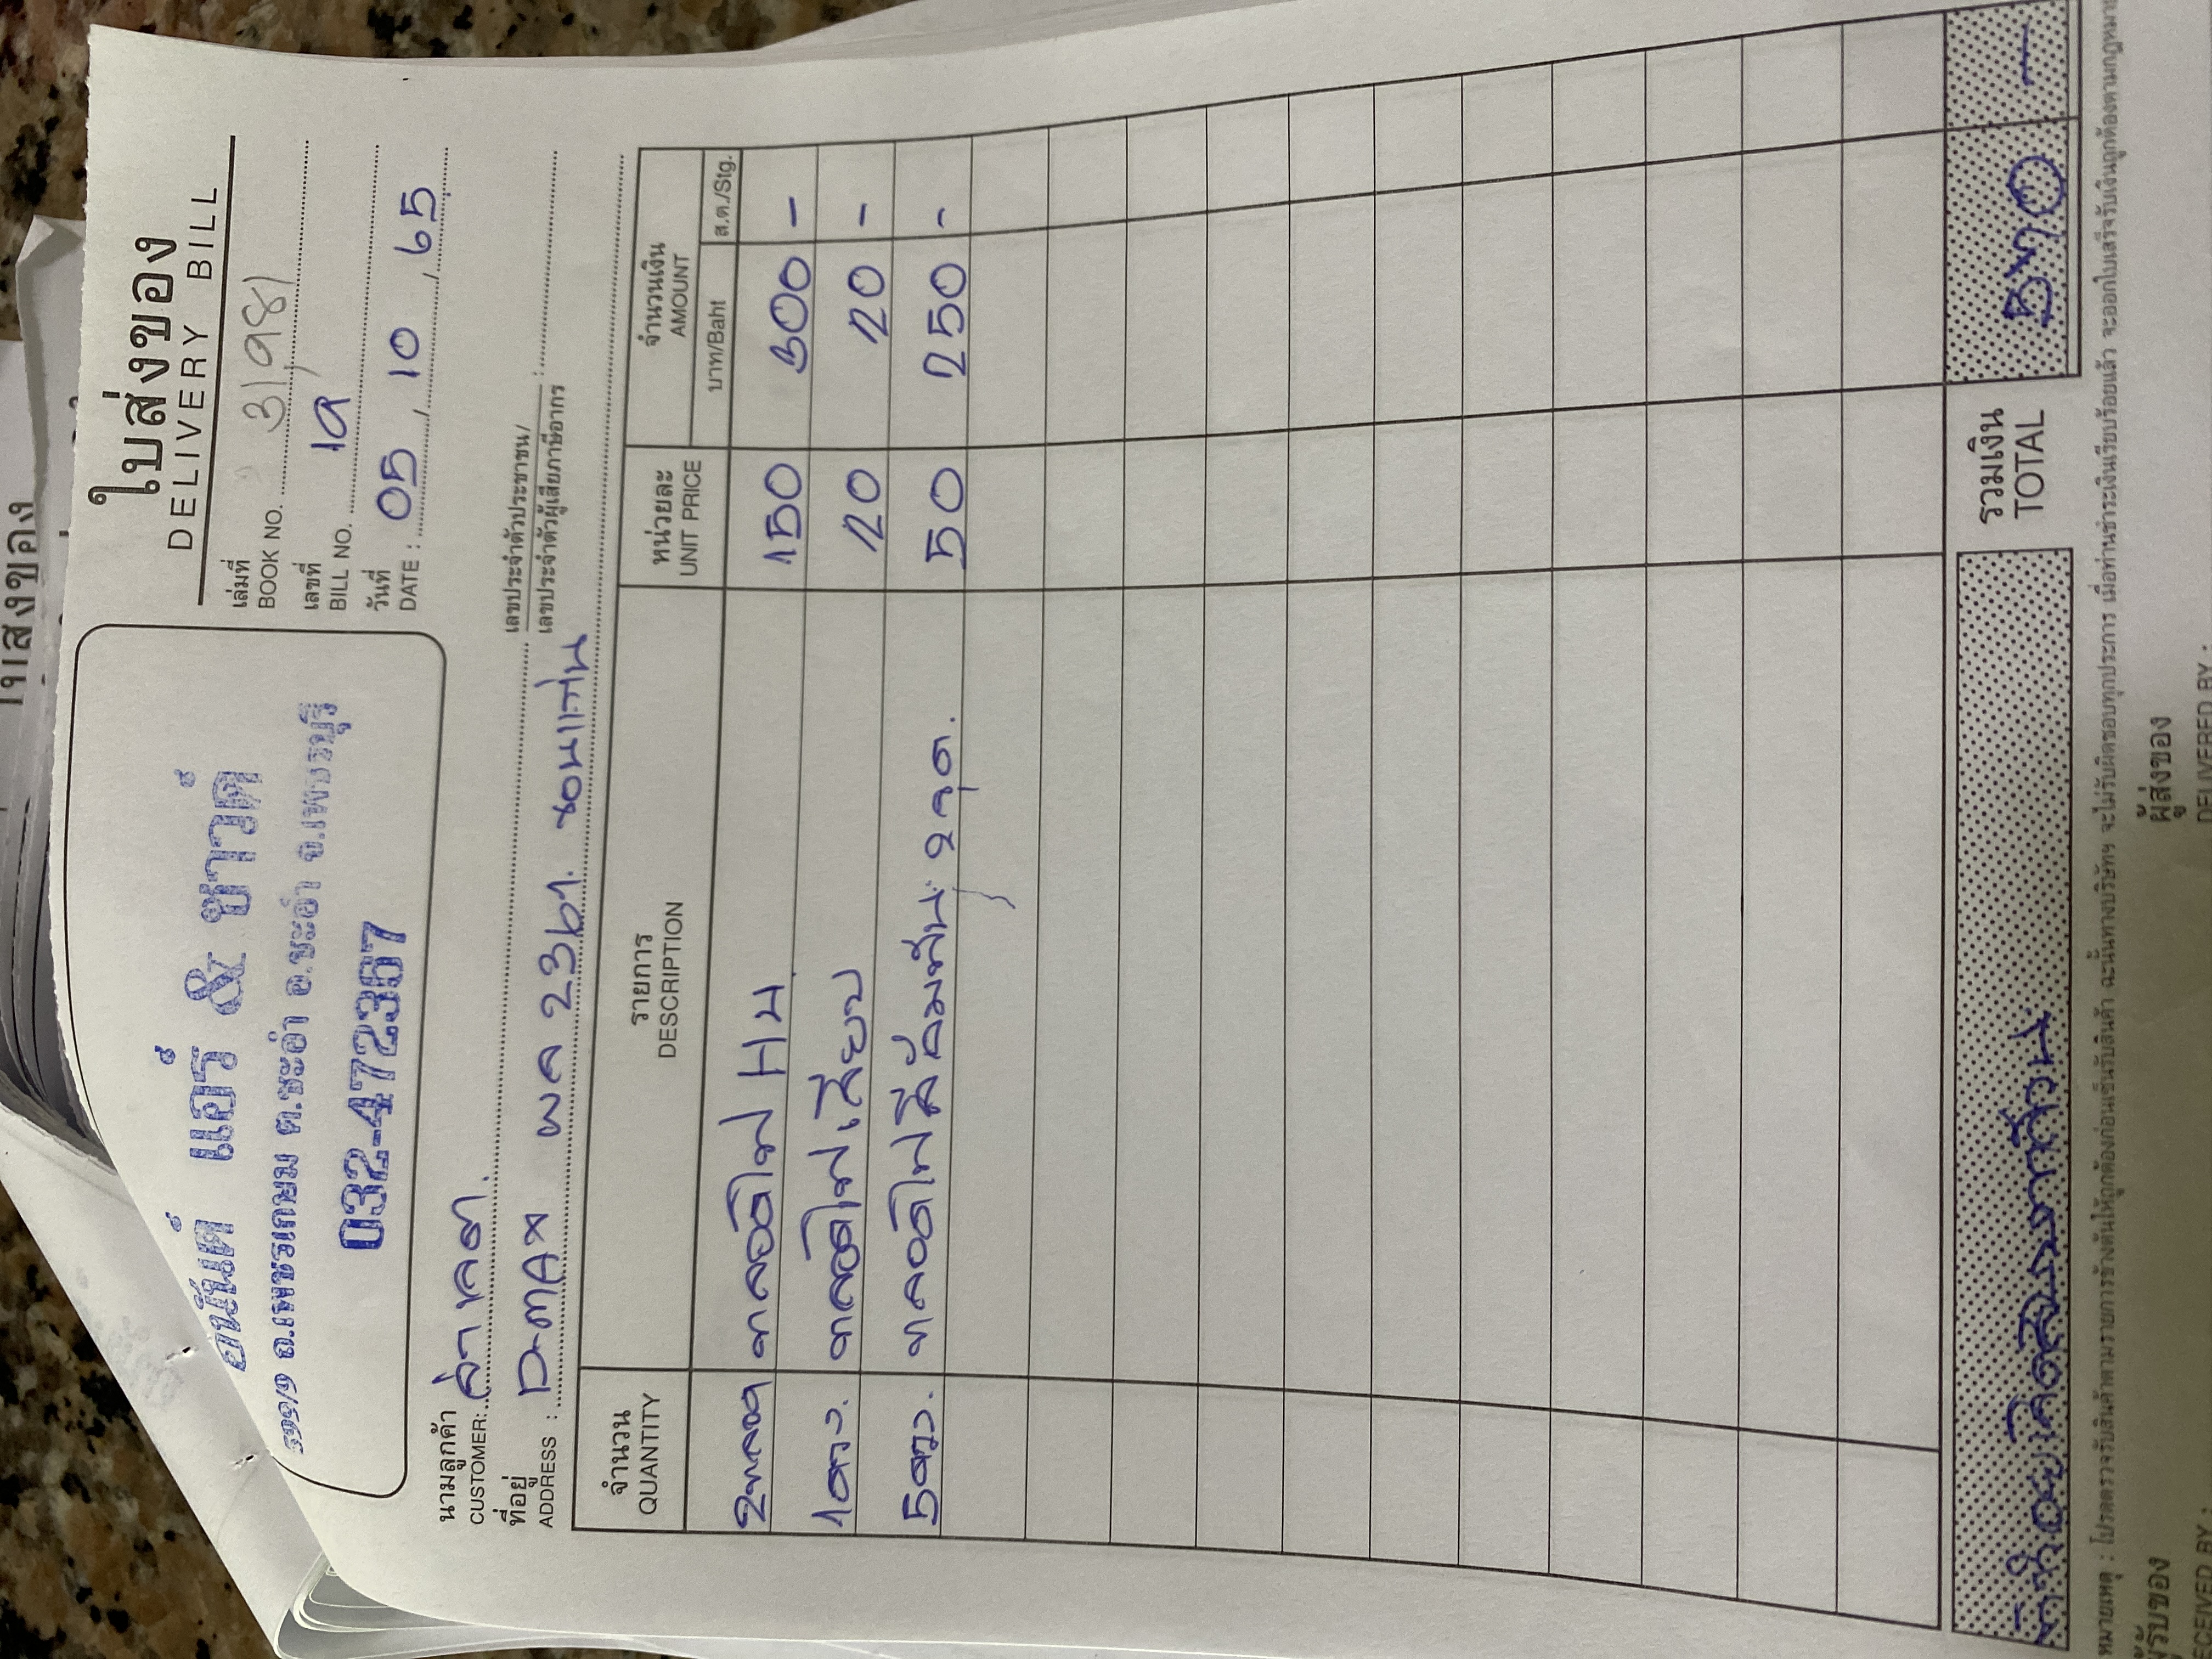 ใบส่งของ
ใบส่งของ
DELIVERY BILL
อนันต์ แอร์ & ซาวด์
ถ.เพชรเกษม ต.ชะอำ อ.ชะอำ จ.เพชรบุรี
032-472367
เล่มที่
BOOK NO. 31981
เลขที่
BILL NO. 19
วันที่
DATE : 05, 10, 65
นามลูกค้า
CUSTOMER:
เลขประจำตัวประชาชน/
เลขประจำตัวผู้เสียภาษีอากร :
ที่อยู่
ADDRESS : D-MAX ผล 2367. ขอนแก่น
จำนวน รายการ หน่วยละ จำนวนเงิน
QUANTITY DESCRIPTION UNIT PRICE AMOUNT
บาท/Baht ส.ต./Stg.
2หลอด หลอดไฟ H4 150 300 -
1ดวง. หลอดไฟเสียบ 120 120 -
5ดวง. หลอดไฟส้ม 50 250 -
หกร้อยเจ็ดสิบบาทถ้วน รวมเงิน 670 -
TOTAL
หมายเหตุ : โปรดตรวจรับสินค้าตามรายการข้างต้นให้ถูกต้องก่อนเซ็นรับสินค้า ฉะนั้นทางบริษัทฯ จะไม่รับผิดชอบทุกประการ เมื่อท่านชำระเงินเรียบร้อยแล้ว จะออกใบเสร็จรับเงินถูกต้องตามกฎหมาย
ผู้รับของ ผู้ส่งของ
RECEIVED BY : DELIVERED BY :